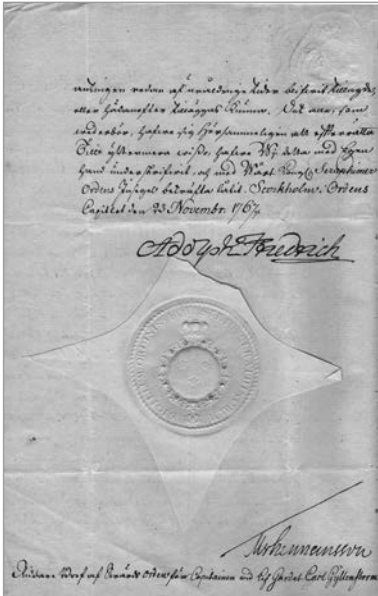 antingen redan af uråldrige tider blifvit tillagde,
eller hädanefter tilläggas kunna. Det alle, som
wederbör, hafve sig hörsammeligen att efterrätta
Till yttermera wisso, hafve Wij detta med Egen
hand underskrifvit, och med Wårt Kongl. Seraphimer
Ordens Insegel bekräfta låtit. Stockholm. Ordens
Capitlet den 23 Novembr. 1767.
Adolph Friedrich
Riddare Bref af Swärds Orden för Capitainen Carl Gyllenstierna